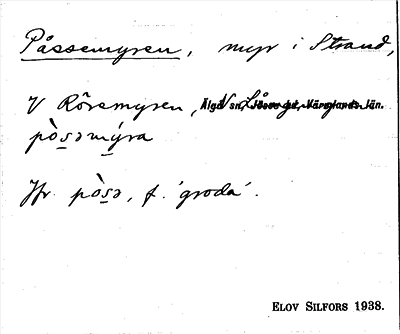 Påssemyren, myr i Strand,
V Rörsmyren, Älgå sn, Jösse hd, Värmlands län.
pòsəmýra
Jfr pòsə, f. 'groda'.
ELOV SILFORS 1938.